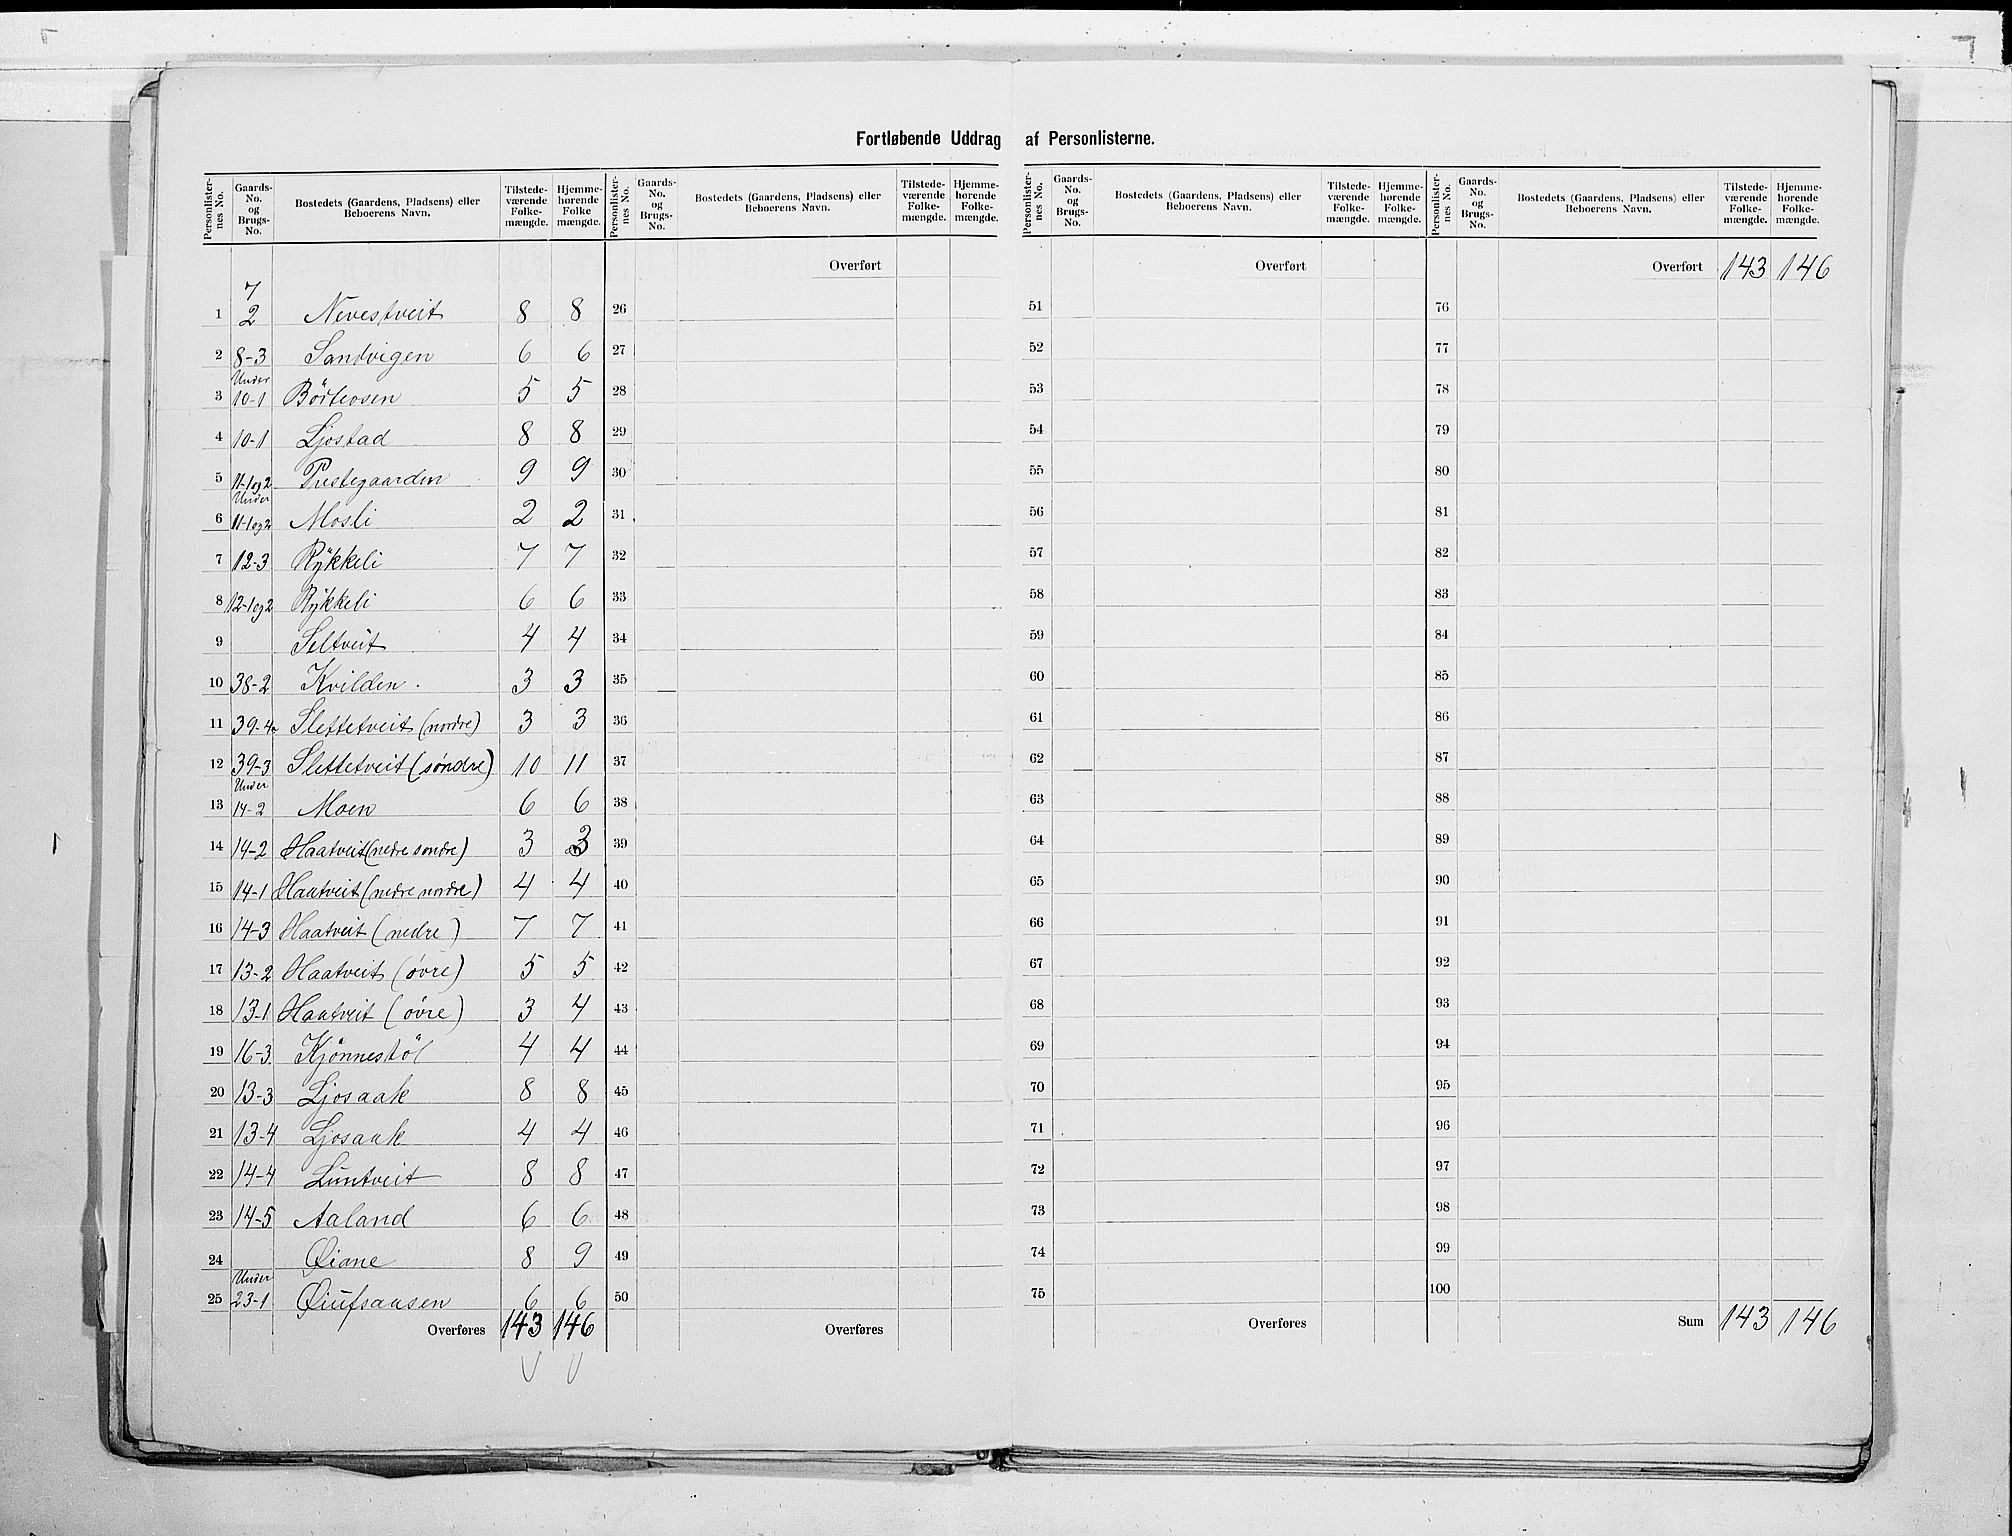 Fortløbende Uddrag af Personlisterne.
Personlister-nes No. Gaards-No. og Brugs-No. Bostedets (Gaardens, Pladsens) eller Beboerens Navn. Tilstede-værende Folke-mængde. Hjemme-hørende Folke mængde. Personlister-nes No. Gaards-No. og Brugs-No. Bostedets (Gaardens, Pladsens) eller Beboerens Navn. Tilstede-værende Folke-mængde. Hjemme-hørende Folke-mængde. Personlister-nes No. Gaards-No. og Brugs-No. Bostedets (Gaardens, Pladsens) eller Beboerens Navn. Tilstede-værende Folke-mængde. Hjemme-hørende Folke-mængde. Personlister-nes No. Gaards-No. og Brugs-No. Bostedets (Gaardens, Pladsens) eller Beboerens Navn. Tilstede-værende Folke-mængde. Hjemme-hørende Folke-mængde.
Overført Overført Overført 143 146
7
1 2 Nevestveit 8 8 26 51 76
2 8-3 Sandvigen 6 6 27 52 77
Under
3 10-1 Börteosen 5 5 28 53 78
4 10-1 Ljostad 8 8 29 54 79
5 11-1og2 Prestegaarden 9 9 30 55 80
Under
6 11-1og2 Mosli 2 2 31 56 81
7 12-3 Rykkeli 7 7 32 57 82
8 12-1og2 Rykkeli 6 6 33 58 83
9 Seltveit 4 4 34 59 84
10 38-2 Kvilden. 3 3 35 60 85
11 39-4 Slettetveit (nordre) 3 3 36 61 86
12 39-3 Slettetveit (söndre) 10 11 37 62 87
Under
13 14-2 Moen 6 6 38 63 88
14 14-2 Haatveit (nedre sondre) 3 3 39 64 89
15 14-1 Haatveit (nedre nordre) 4 4 40 65 90
16 14-3 Haatveit (nedre) 7 7 41 66 91
17 13-2 Haatveit (övre) 5 5 42 67 92
18 13-1 Haatveit (övre) 3 4 43 68 93
19 16-3 Kjönnestöl 4 4 44 69 94
20 13-3 Ljosaak 8 8 45 70 95
21 13-4 Ljosaak 4 4 46 71 96
22 14-4 Luntveit 8 8 47 72 97
23 14-5 Aaland 6 6 48 73 98
24 Øiane 8 9 49 74 99
Under
25 23-1 Øiufsausen 6 6 50 75 100
Overføres 143 146 Overføres Overføres Sum 143 146